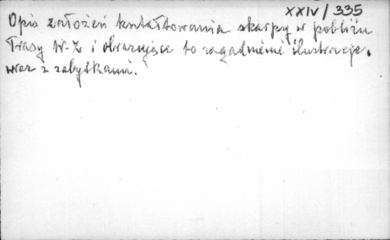 XXIV/335
Opis założeń kształtowania skarpy w pobliżu
Trasy W-Z i obrazujące to zagadnienie ilustracje,
wraz z zabytkami.